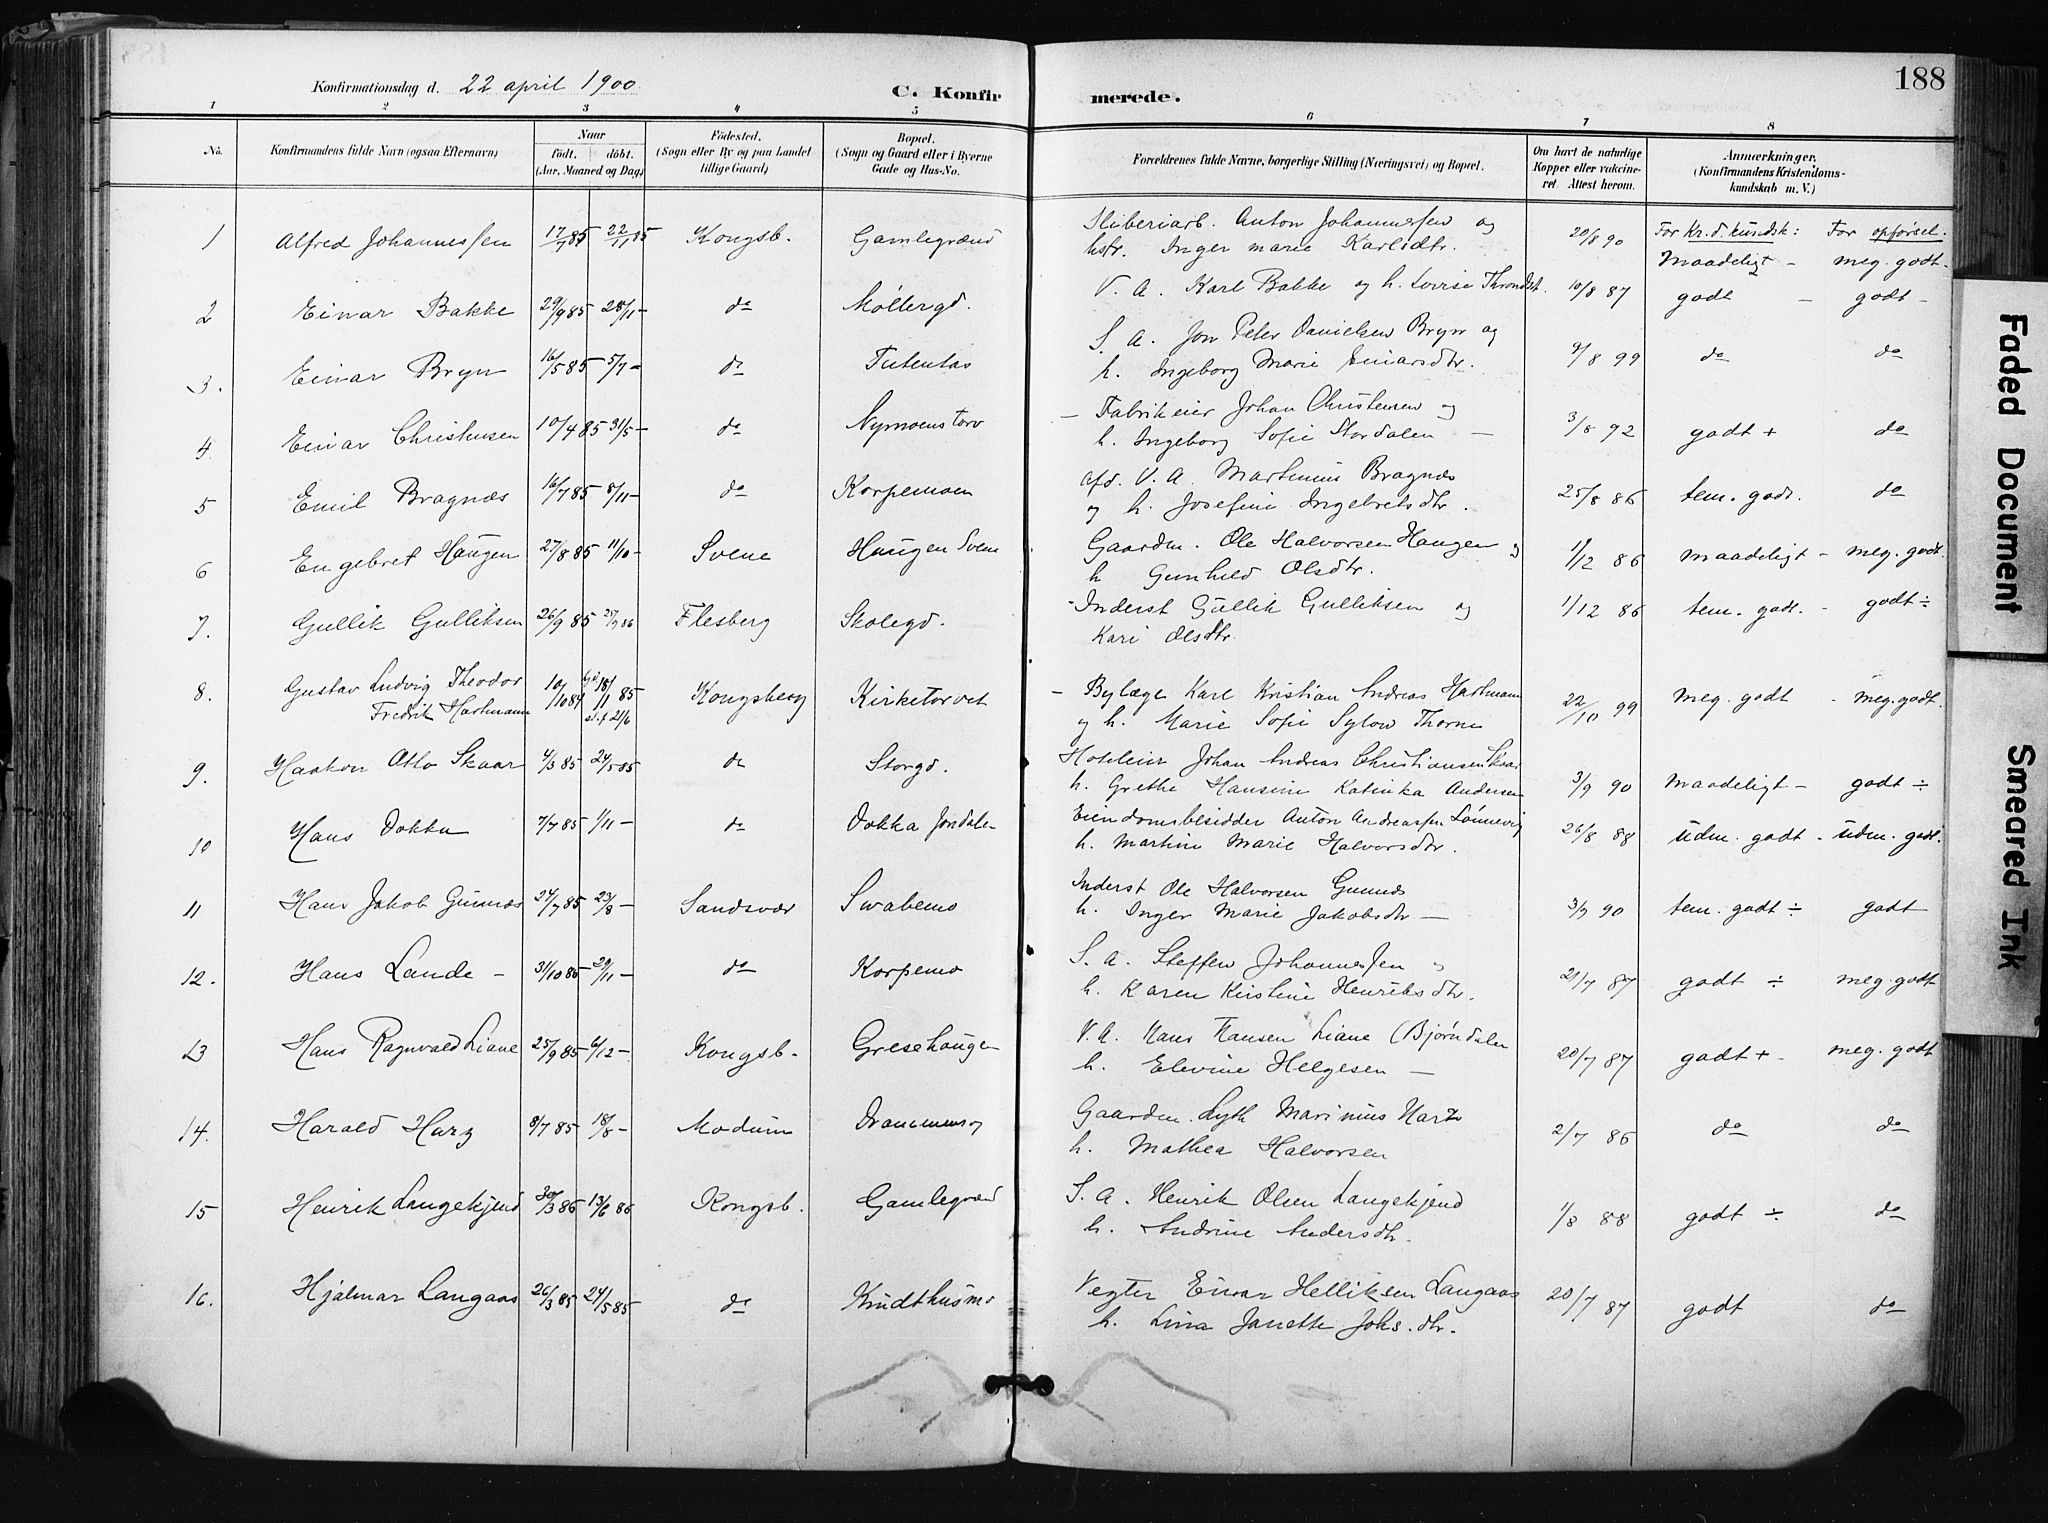 188
Konfirmationsdag d. 22 april 1900
C. Konfirmerede.
1 2 3 4 5 6 7 8
No. Konfirmandens fulde Navn (ogsaa Efternavn) Naar født. døbt. (Aar, Maaned og Dag) Fødested. (Sogn eller By og paa Landet tillige Gaard) Bopæl. (Sogn og Gaard eller i Byerne Gade og Hus-No. Forældrenes fulde Navne, borgerlige Stilling (Næringsvei) og Bopæl. Om havt de naturlige Kopper eller vakcineret. Attest herom. Anmærkninger, (Konfirmandens Kristendomskundskab m. V.)
1 Alfred Johannessen 17/1 85 22/11 85 Kongsb. Gamlegrænd Sliberiarb. Anton Johannessen og 20/8 90 For kr.d.kundsk: For opførsel.
hstr. Inger marie Karlsdtr. Maadeligt - meg. godt-
2 Einar Bakke 29/9 85 28/11 - do Møllergd. V. A. Karl Bakke og h. Lovise Throndst. 10/8 87 godt - godt -
3. Einar Bryn 16/5 85 5/7 - do Tutentas S. A. Jon Peter Danielsen Bryn og 9/8 99 do do
h. Ingeborg Marie Einarsdtr.
4. Einar Christensen 10/4 85 31/5 - do Nymoenstorv - Fabrikeier Johan Christensen og 3/8 92 godt + do
h. Ingeborg Sofie Stordalen -
5 Emil Bragnæs 16/7 85 8/11 - do Korpemoen afd. V. A. Martinius Bragnæs 25/8 86 tem. godt. do
og h. Josefine Ingebretsdtr.
6 Engebret Haugen 27/8 85 11/10 - Svene Haugen Svene Gaardm. Ole Halvorsen Haugen og 1/12 86 maadeligt - meg. godt.
h Gunhild Olsdtr.
7. Gullik Gulliksen 26/9 85 25/9 86 Flesberg Skolegd. - Inderst Gullik Gulliksen og 1/12 86 tem. godt. - godt ÷
Kari Olsdtr.
8. Gustav Ludvig Theodor 10/10 84 18/11 85 Kongsberg Kirketorvet - Bylæge Karl Kristian Andreas Hartmann 22/10 99 meg. godt - meg. godt.
Fredrik Hartmann 21/6 og h. Marie Sofie Sylow Thorne
9. Haakon Otto Skaar 4/3 85 24/5 85 do Storgd. Hoteleier Johan Andreas Christiansen Skaar 3/9 90 maadeligt - godt ÷
h. Grethe Hansine Katinka Andersen
10 Hans Dokka 7/7 85 1/11 - do Dokka Jondalen Eiendomsbesidder Anton Andreassen Lønnevig 26/8 88 udm. godt - udm. godt.
h. Martine Marie Halvorsdtr.
11 Hans Jakob Gunnæs 24/7 85 23/8 - Sandsvær Svabemo Inderst Ole Halvorsen Gunnæs 3/9 90 tem. godt ÷ godt
h. Inger Marie Jakobsdtr -
12. Hans Lande - 31/10 85 29/11 - do Korpemo S. A. Steffen Johannessen og 21/7 87 godt ÷ meg. godt
h. Karen Kirstine Henriksdtr.
13 Hans Ragnvald Liane 25/9 85 6/12 - Kongsb. Gresehaugen V. A. Hans Hansen Liane (Bjørndalen 20/7 87 godt + - meg. godt
h. Elevine Helgesen -
14. Harald Harz 8/7 85 18/8 - Modum Drammensv Gaardm. Lyth Marinius Hartz 2/7 86 do do
h. Mathea Halvorsen
15 Henrik Langekjend 30/3 86 13/6 86 Kongsb. Gamlegrænd S. A. Henrik Olsen Langekjend 1/8 88 godt ÷ do
h. Andrine Andersdtr.
16. Hjalmar Langaas 26/3 85 24/5 85 do Krudthusmo Vegter Einar Helliksen Langaas 20/7 87 godt do
h. Lina Janette Johs. dtr.
Faded Document
Smeared Ink